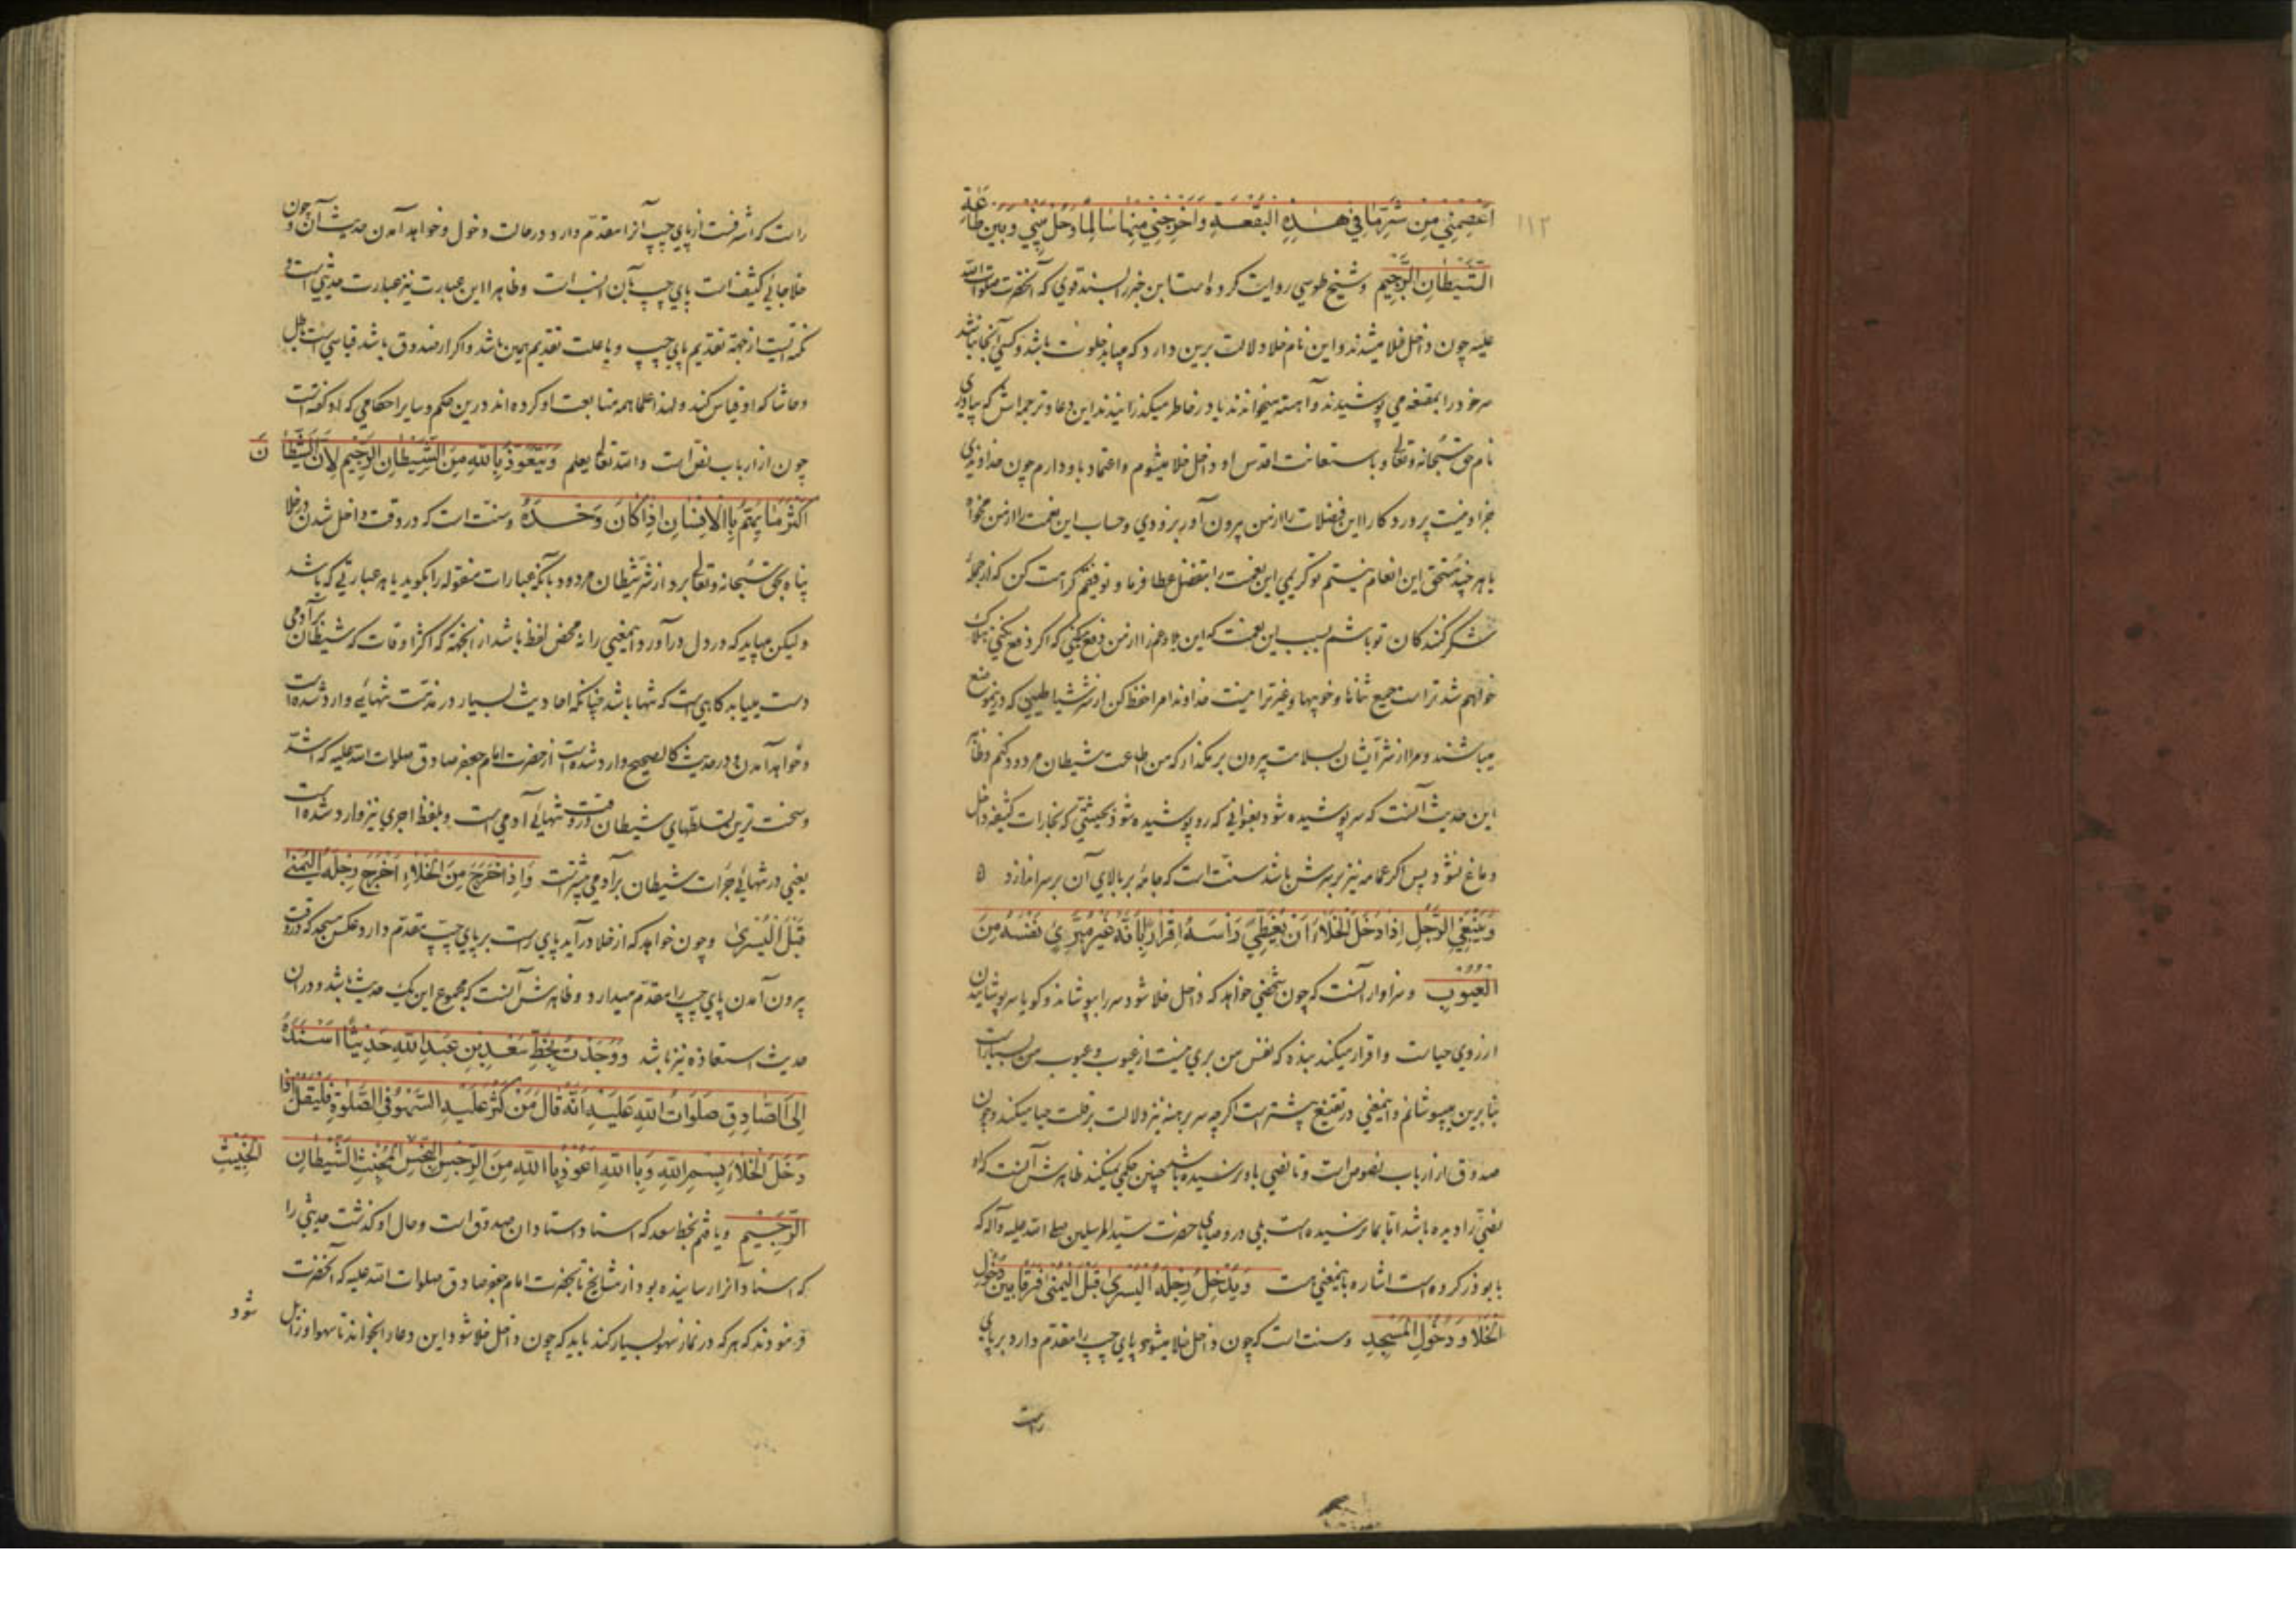 ۱۱۲
اَعْصِمْنِي مِنْ شَرِّ مَا فِي هٰذِهِ الْبُقْعَةِ وَاَخْرِجْنِي مِنْهَا سَالِمًا وَحُلْ بَيْنِي وَبَيْنَ طَاعَةِ
الشَّيْطَانِ الرَّجِيْمِ وشيخ طوسي روايت كرده است اين خبر را بسند قوي كه آنحضرت صلوات الله
عليه چون داخل خلا ميشدند و اين نام خلا دلالت برين دارد كه ميبايد خلوت باشد و كسي آنجا نباشد
سر خود را بمقنعه مي پوشيدند و آهسته ميخواندند يا در خاطر ميكذرانيدند اين دعا و ترجمه اش كه بياوري
نام حق سبحانه و تعالي و باستعانت اقدس او داخل خلا ميشوم و اعتماد باو دارم چون خداوندي
بجز او نيست پروردكارا اين فضلات را از من بيرون آور بزودي و حساب اين نعمت را از من مخواه
يا هر چند مستحق اين انعام نيستم تو كريمي اين نعمت را بتفضل عطا فرما و توفيقم كرامت كن كه از جمله
شكر كنندكان تو باشم بسبب اين نعمت كه اين را از من دفع ميكني كه اكر دفع نكني هلاك
خواهم شد تراست جميع ثناها و خوبيها و غير ترا نيست خداوندا مرا حفظ كن از شر شياطيني كه درين موضع
ميباشند و مرا از شر ايشان بسلامت بيرون بر مكذار كه من اطاعت شيطان مردود كنم و ظاهر
اين حديث آنست كه سر پوشيده شود بعنواني كه رو پوشيده شود بحيثيتي كه بخارات كثيفه داخل
دماغ نشود پس اكر عمامه نيز بر سرش باشد سنت است كه جامهٔ بر بالاي آن بر سر اندازد ۵
وَيَنْبَغِي الرَّجُلِ اِذَا دَخَلَ الْخَلَاءَ اَنْ يُغَطِّيَ رَأْسَهُ اِقْرَارًا بِاَنَّهُ غَيْرُ مُبَرِّئٍ نَفْسَهُ مِنَ
الْعُيُوْبِ و سزاوار آنست كه چون شخصي خواهد كه داخل خلا شود سر را بپوشاند و كويا سر پوشانيدن
از روي حيا است و اقرار ميكند بنده كه نفس من بري نيست از عيوب و عيوب من بسيار است
بنابرين ميپوشانم و اينمعني در تقنع بيشتر است اكر چه سر برهنه نيز دلالت بر قلت حيا ميكند و چون
صدوق از ارباب نصوص است و تا نصي باو نرسيده باشد چنين حكمي نميكند ظاهرش آنست كه او
نصي را ديده باشد اما بما نرسيده است بلي در وصاياي حضرت سيد المرسلين صلي الله عليه و آله كه
بابوذر كرده است اشاره باينمعني هست وَيُدْخِلُ رِجْلَهُ الْيُسْرَى قَبْلَ الْيُمْنَى فَرْقًا بَيْنَ دُخُوْلِ
الْخَلَا وَ دُخُوْلِ الْمَسْجِدِ و سنت است كه چون داخل خلا ميشود پاي چپ را مقدم دارد بر پاي
راست
راست كه اشرفست از پاي چپ آنرا مقدم دارد در حالت دخول و خواهد آمدن حديث آن و چون
خلا جائي كثيف است پاي چپ بآن انسب است و ظاهرا اين عبارت نيز عبارت حديثي است و
نكته ايست از جهة تقديم پاي چپ و يا علت تقديم همين باشد و اكر از صدوق باشد قياسي است باطل
و حاشا كه او قياس كند و لهذا علما همه متابعت او كرده اند درين حكم و ساير احكامي كه او كفته است
چون از ارباب نص است و الله تعالي يعلم وَيَتَعَوَّذُ بِاللّٰهِ مِنَ الشَّيْطَانِ الرَّجِيْمِ لِاَنَّ الشَّيْطَانَ
اَكْثَرُ مَا يَهُمُّ بِالْاِنْسَانِ اِذَا كَانَ وَحْدَهُ و سنت است كه در وقت داخل شدن در خلا
پناه بحق سبحانه و تعالي برد از شر شيطان مردود بآنكه عبارات منقوله را بكويد يا هر عبارتي كه باشد
و ليكن ميبايد كه در دل درآورد اينمعني را نه محض لفظ باشد از آنجهة كه اكثر اوقات كه شيطان بر آدمي
دست مييابد كاهي است كه تنها باشد چنانكه احاديث بسيار در مذمت تنهائي وارد شده است
و خواهد آمدن و در حديث كالصحيح وارد شده است از حضرت امام جعفر صادق صلوات الله عليه كه اشد
و سخت ترين تسلطهاي شيطان در وقت تنهائي آدمي است و بلفظ اجري نيز وارد شده است
يعني در تنهائي جرات شيطان بر آدمي بيشتر است وَاِذَا خَرَجَ مِنَ الْخَلَاءِ اَخْرَجَ رِجْلَهُ الْيُمْنَى
قَبْلَ الْيُسْرَى و چون خواهد كه از خلا درآيد پاي راست بر پاي چپ مقدم دارد عكس مسجد كه در وقت
بيرون آمدن پاي چپ را مقدم ميدارد و ظاهرش آنست كه مجموع اين يك حديث باشد و در آن
حديث استعاذه نيز باشد وَوَجَدْتُ بِخَطِّ سَعْدِ بْنِ عَبْدِ اللّٰهِ حَدِيْثًا اَسْنَدَهُ
اِلَى الصَّادِقِ صَلَوَاتُ اللّٰهِ عَلَيْهِ اَنَّهُ قَالَ مَنْ كَثُرَ عَلَيْهِ السَّهْوُ فِي الصَّلٰوةِ فَلْيَقُلْ اِذَا
دَخَلَ الْخَلَاءَ بِسْمِ اللّٰهِ وَبِا اللّٰهِ اَعُوْذُ بِا اللّٰهِ مِنَ الرِّجْسِ النِّجْسِ الْمُخْبِثِ الشَّيْطَانِ الْخَبِيْثِ
الرَّجِيْمِ و يافتم بخط سعد كه استاد استادان صدوق است و حال او كذشت حديثي را
كه اسناد آنرا رسانيده بود از مشايخ تا بحضرت امام جعفر صادق صلوات الله عليه كه آنحضرت
فرمودند كه هر كه در نماز سهو بسيار كند بايد كه چون داخل خلا شود اين دعا را بخواند تا سهو او زايل شود